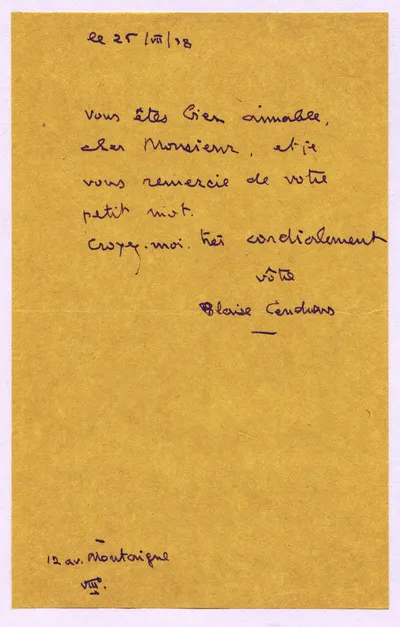 le 25/VII/38
vous êtes bien aimable,
cher Monsieur, et je
vous remercie de votre
petit mot.
Croyez-moi très cordialement
vôtre
Blaise Cendrars
12 av. Montaigne
VIIIe.